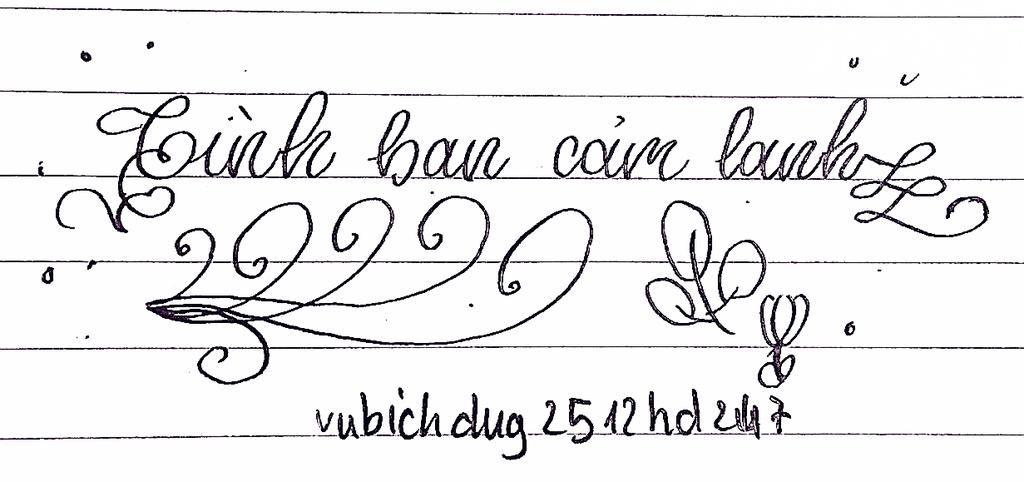 Tình ban cảm lanh
vubichdug 2512hd 2447